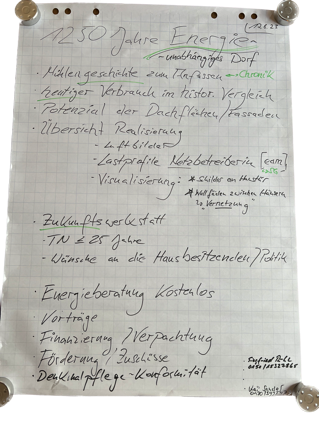 1250 Jahre Energie-
unabhängiges Dorf
· Mühlengeschichte zum Anfassen Chronik
heutiger Verbrauch im histor. Vergleich
· Potenzial der Dachflächen/Fassaden
· Übersicht Realisierung
- Luftbilder
- Lastprofile Netzbetreiberin [eam]
- Visualisierung: * Schilder am Haus
* Wollfäden zwischen Häusern
"Vernetzung"
· Zukunftswerkstatt
- TN ≤ 25 Jahre
- Wünsche an die Hausbesitzenden/Politik
· Energieberatung kostenlos
· Vorträge
· Finanzierung / Verpachtung
· Förderung / Zuschüsse
· Denkmalpflege-Konformität